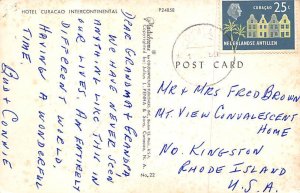 HOTEL CURACAO INTERCONTINENTAL
P24858
DEAR GRANDMA & GRANDPA
WE HAVE NEVER SEEN
ANYTHING LIKE THIS IN
OUR LIVES. AN ENTIRELY
DIFFERENT WORLD.
HAVING A WONDERFUL
TIME.
BOB + CONNIE
CURAÇAO 25c
NEDERLANDSE ANTILLEN
POST CARD
MR & MRS FRED BROWN
MT. VIEW CONVALESCENT
HOME
NO. KINGSTON
RHODE ISLAND
U.S.A.